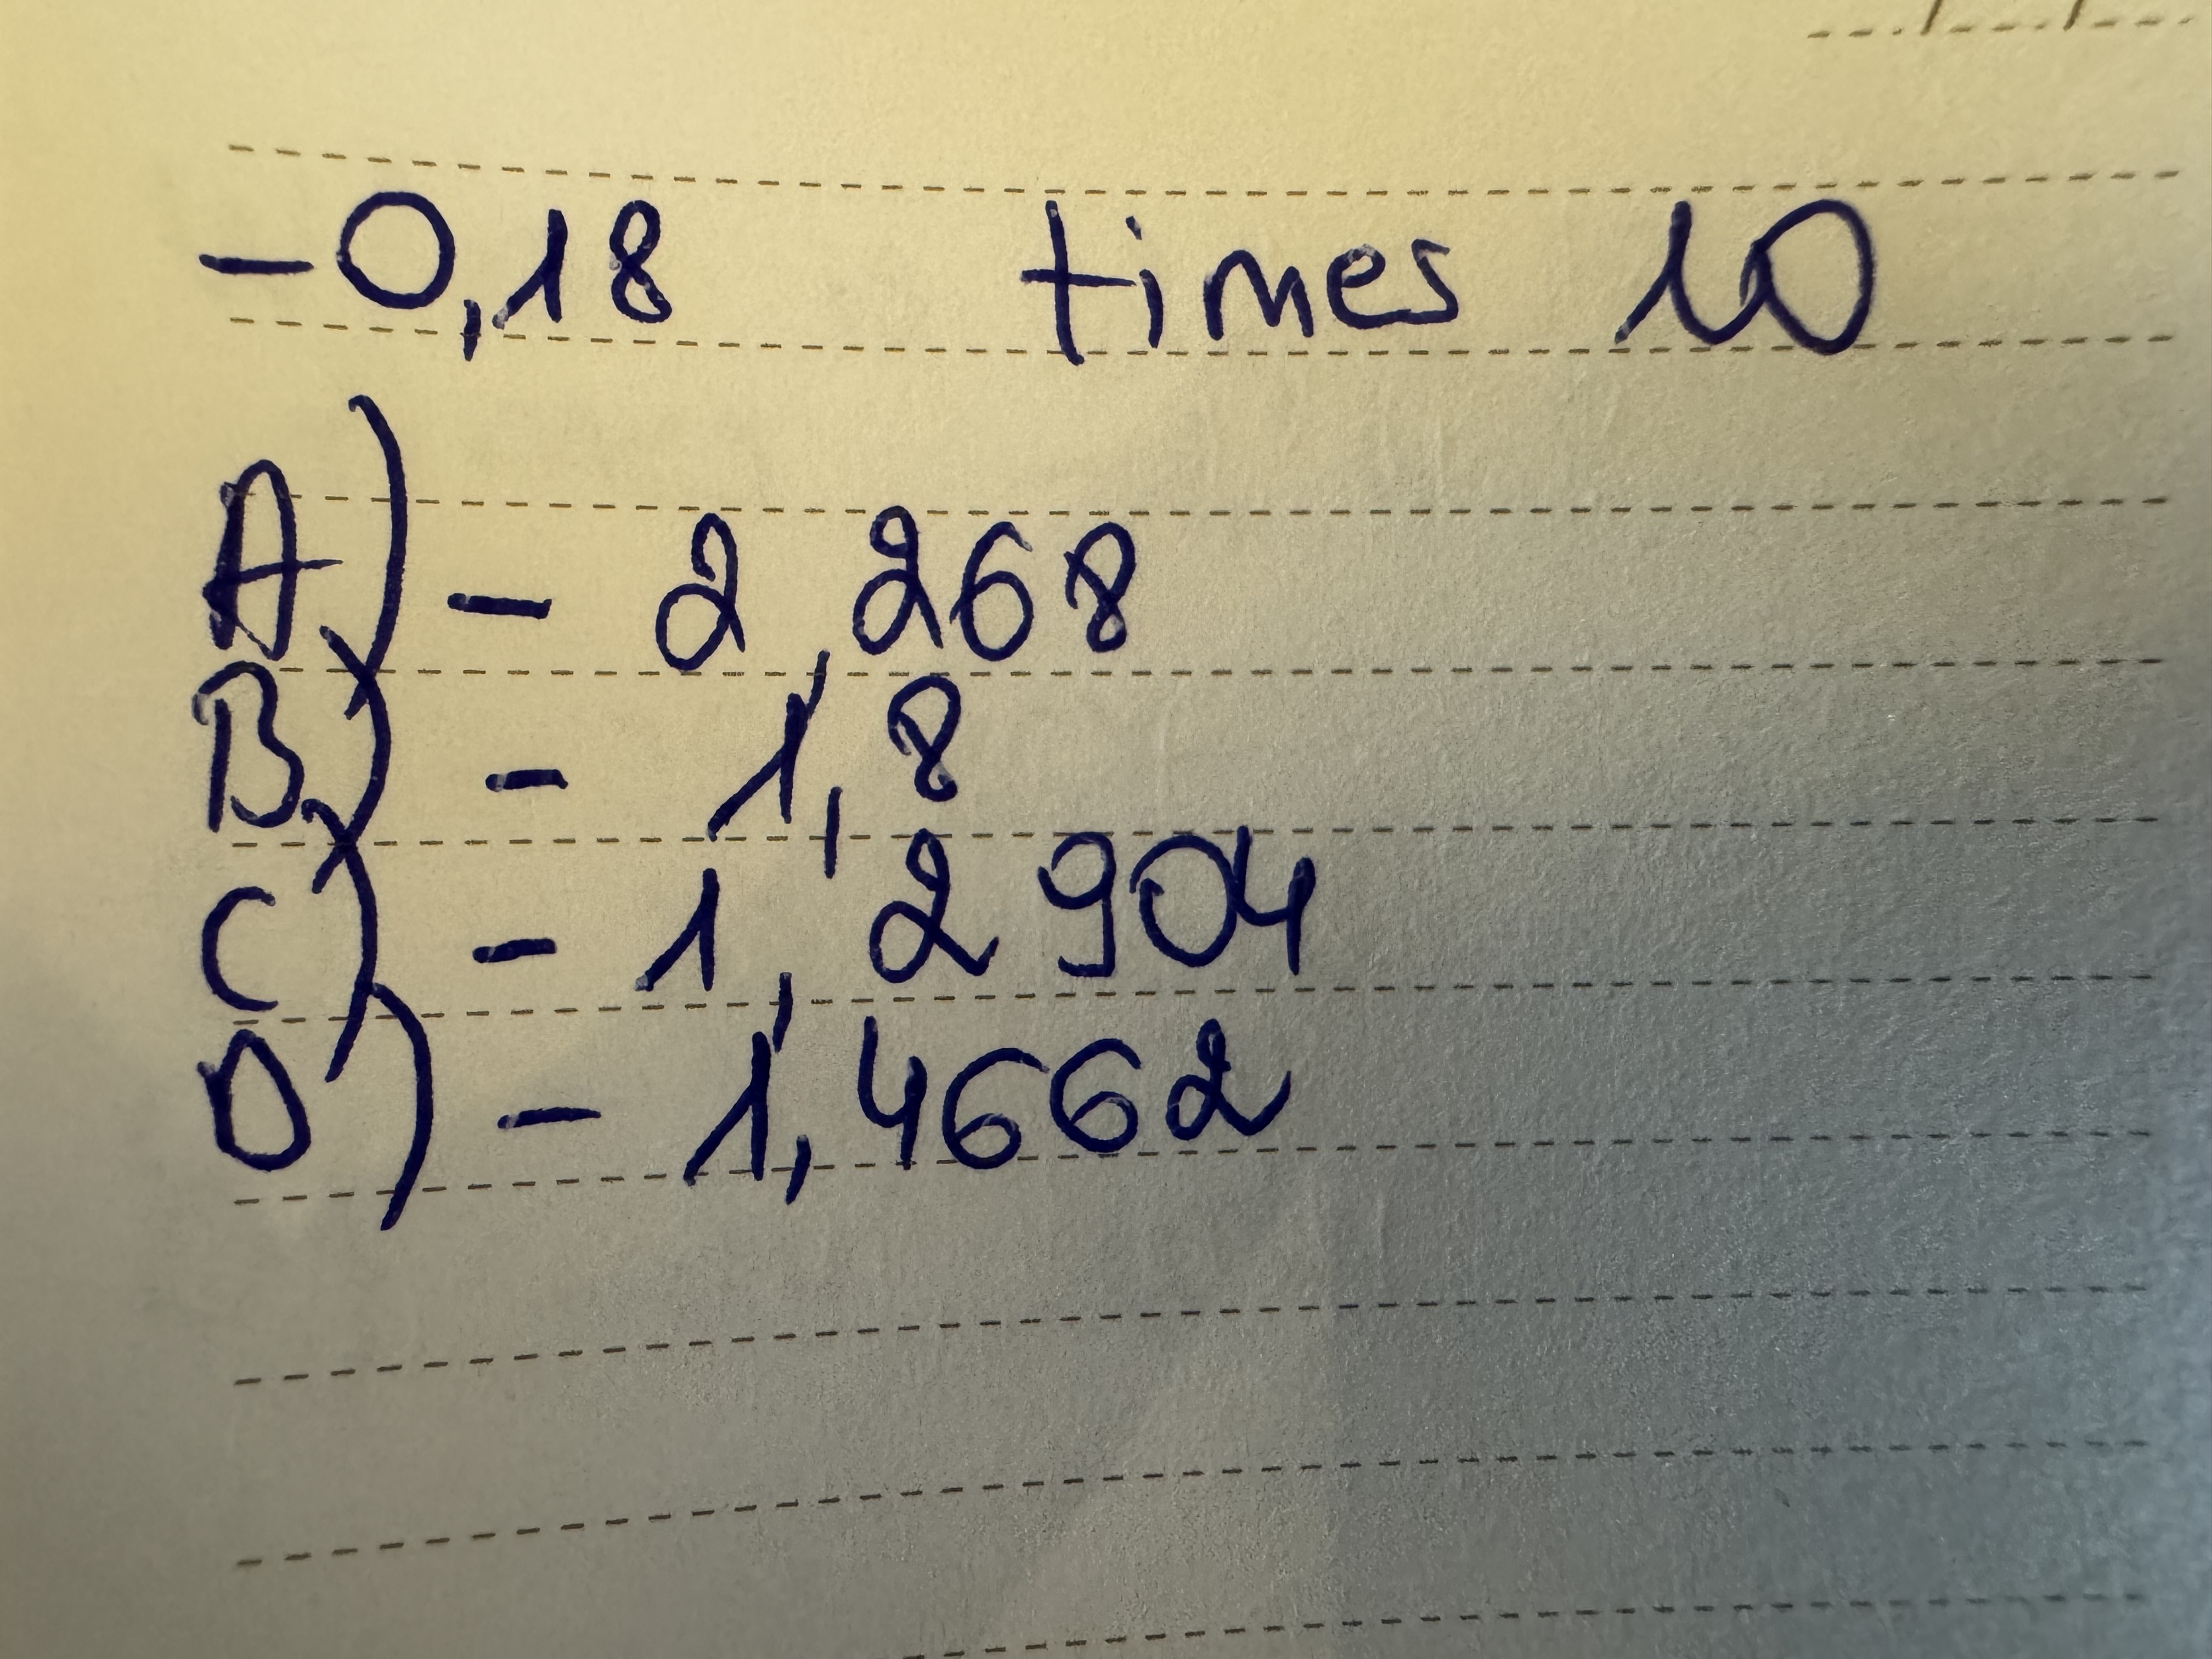 -0,18 times 10
A) - 2,268
B) - 1,8
C) - 1,2904
D) - 1,4662